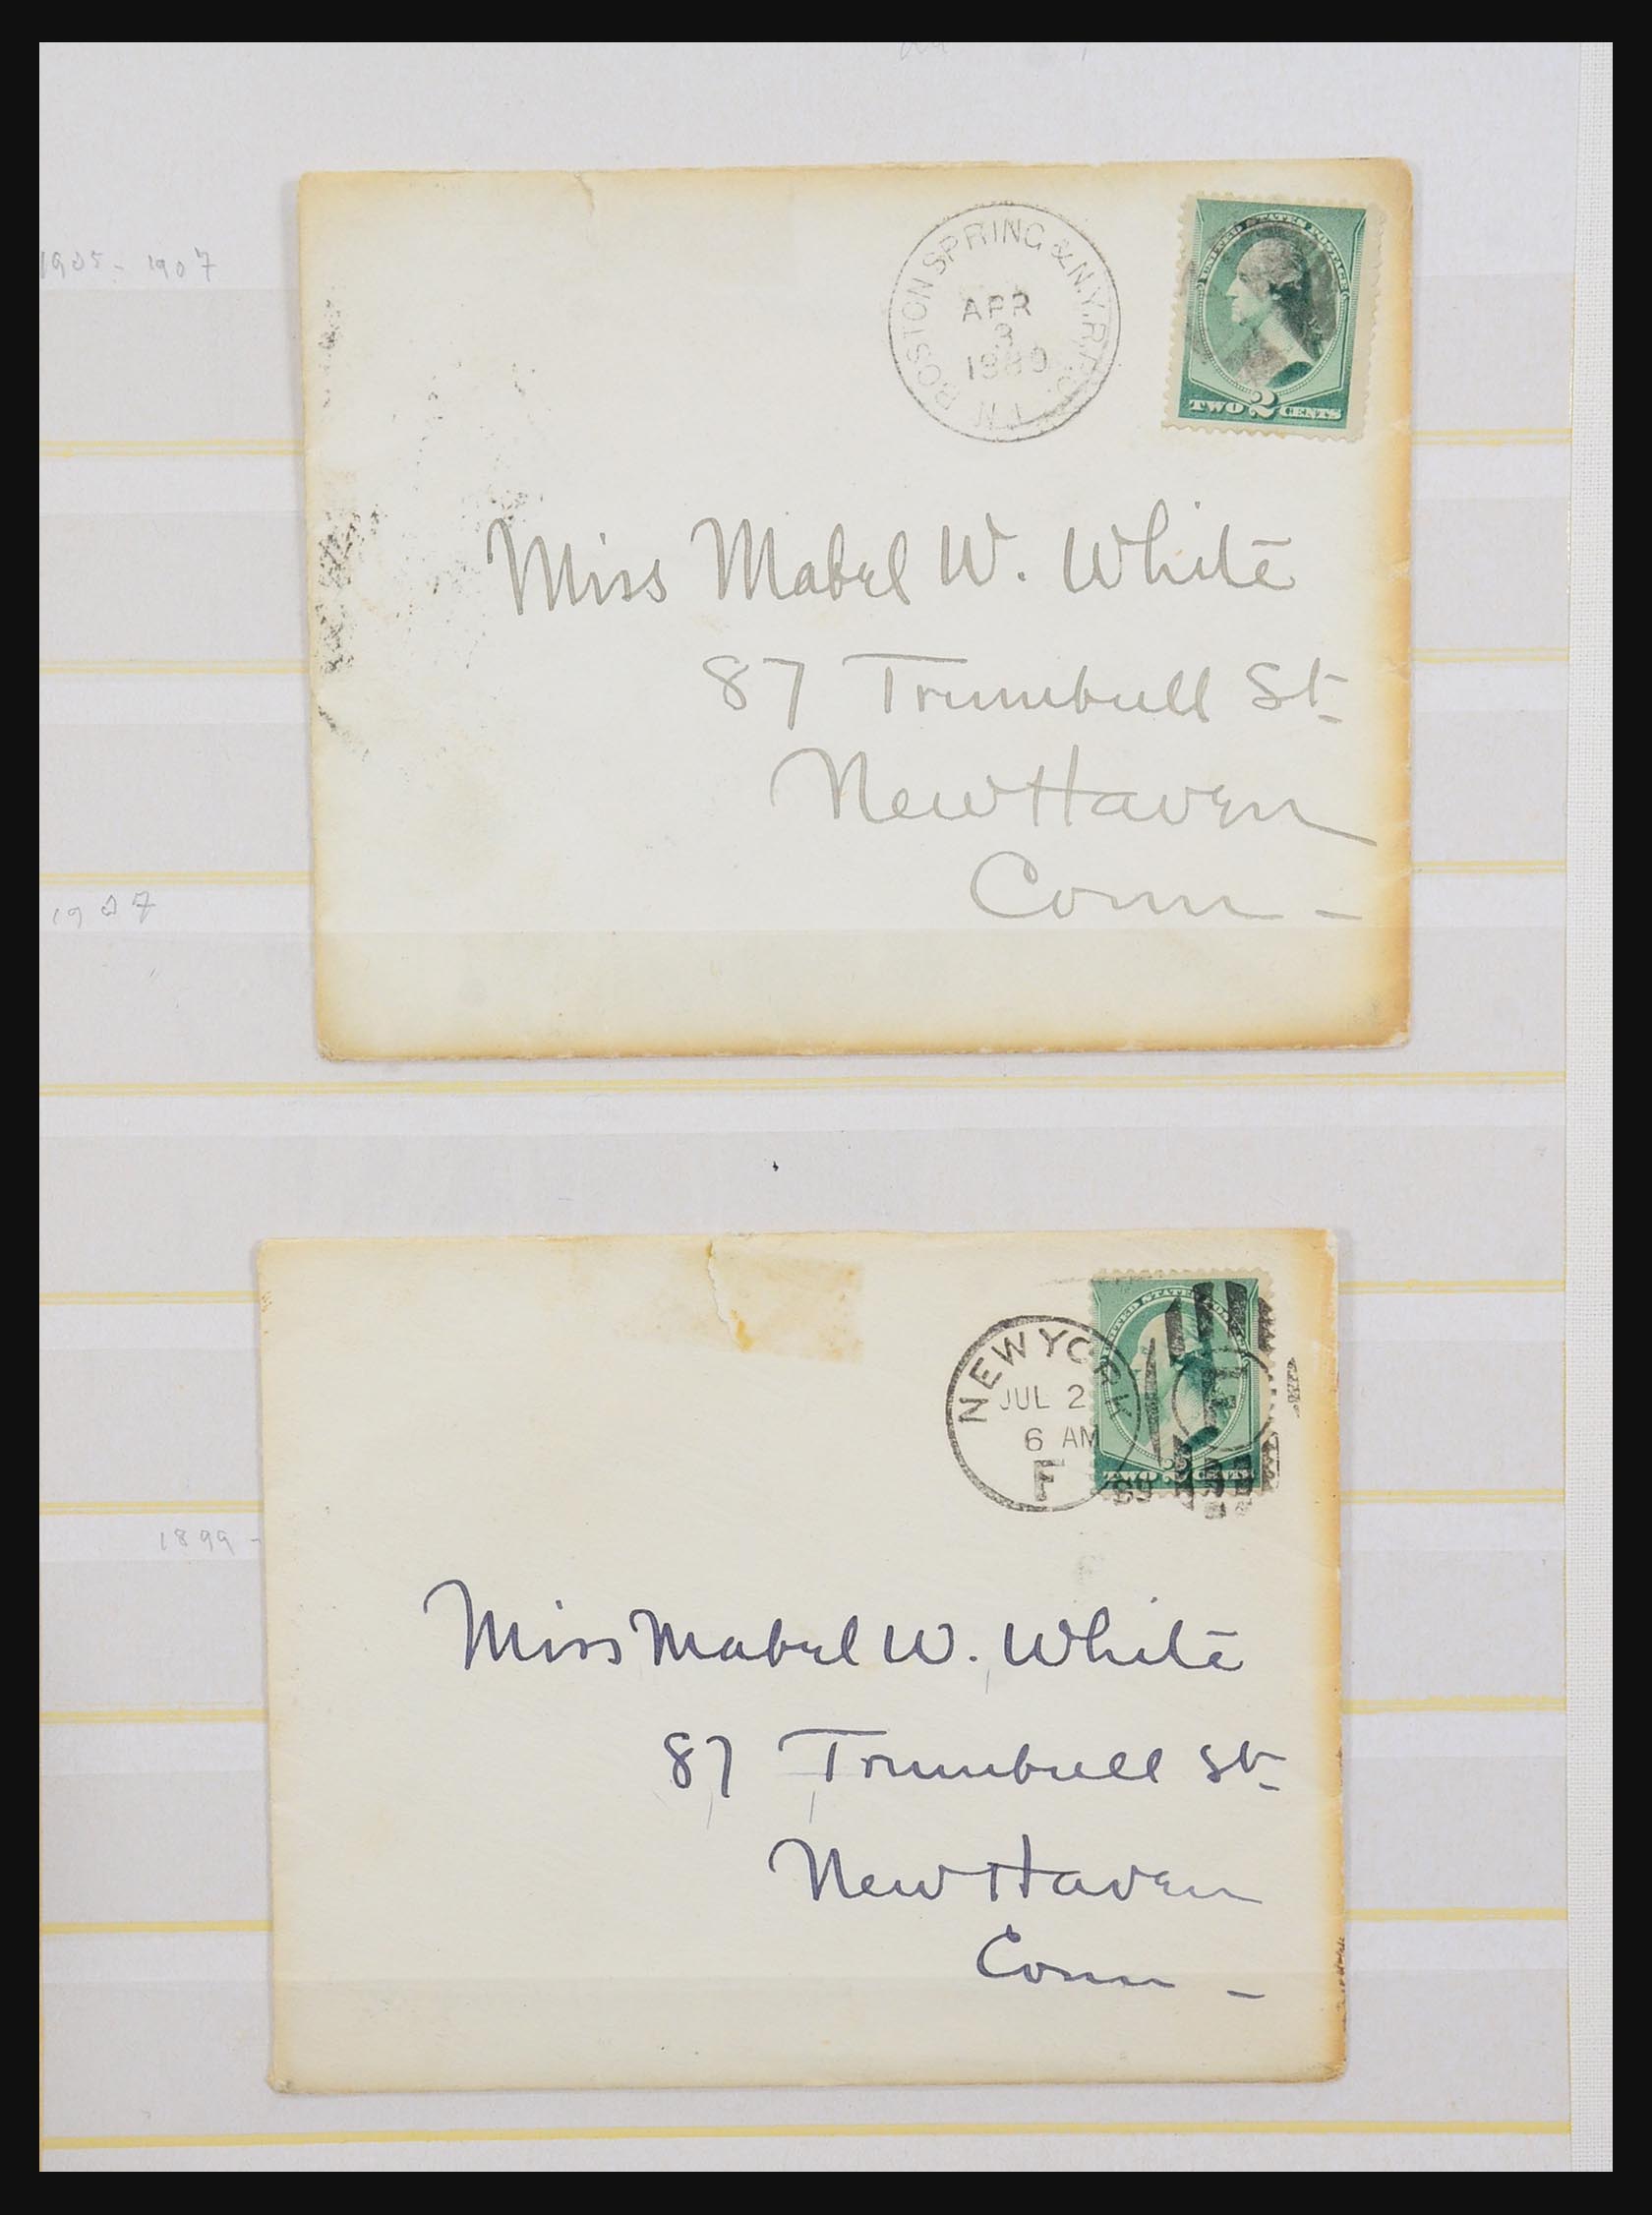 1905 - 1907
BOSTON SPRING & N.Y. R.P.O.
APR
3
UNITED STATES POSTAGE
TWO 2 CENTS
Miss Mabel W. White
87 Trumbull St
New Haven
Conn -
1907
NEW YORK
JUL 2
6 AM
F
89
F
UNITED STATES
TWO 2 CENTS
1899 -
Miss Mabel W. White
87 Trumbull St
New Haven
Conn -